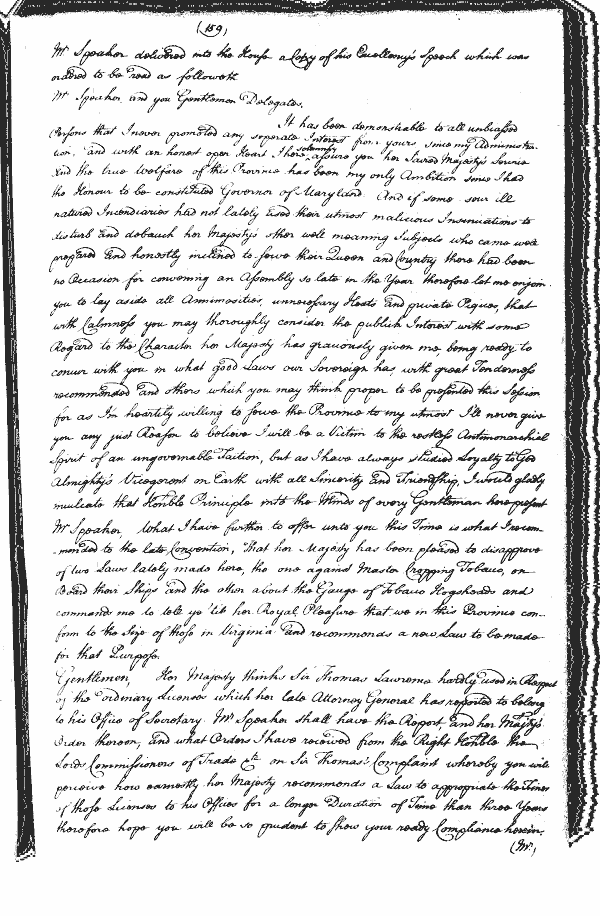 (159)
Mr Speaker delivered into the House a Copy of his Excellency's Speech which was
ordered to be read as followeth
Mr Speaker and you Gentlemen Delegates,
It has been demonstrable to all unbiassed
Persons that I never promoted any seperate Interest from yours since my Administra-
tion, and with an honest open Heart I here solemnly assure you her Sacred Majesty's Service
and the true Welfare of this Province has been my only Ambition since I had
the Honour to be constituted Governor of Maryland. And if some sour ill
natured Incendiaries had not lately used their utmost malicious Insinuations to
disturb and debauch her Majesty's other well meaning Subjects who came well
prepared and honestly inclined to serve their Queen and Country there had been
no Occasion for convening an Assembly so late in the Year therefore let me enjoin
you to lay aside all Annimosities, unnecessary Heats and private Piques, that
with Calmness you may thoroughly consider the publick Interest with some
Regard to the Character her Majesty has graciously given me, being ready to
concur with you in what good Laws our Sovereign has with great Tenderness
recommended and others which you may think proper to be presented this Session
for as I'm heartily willing to serve the Province to my utmost I'll never give
you any just Reason to believe I will be a Victim to the restless Antimonarchial
Spirit of an ungovernable Faction, but as I have always studied Loyalty to God
Almighty's Vicegerent on Earth with all Sincerity and Friendship, I would gladly
inculcate that Honble Principle into the Minds of every Gentleman here present
Mr Speaker, What I have further to offer unto you this Time is what I recom-
-mended to the late Convention, That her Majesty has been pleased to disapprove
of two Laws lately made here, the one against Master Cropping Tobacco, on
Board their Ships and the other about the Gauge of Tobacco Hogsheads and
commands me to tell ye 'tis her Royal Pleasure that we in this Province con-
form to the Size of those in Virginia and recommends a new Law to be made
for that Purpose.
Gentlemen, Her Majesty thinks Sir Thomas Lawrence hardly used in Respect
of the ordinary Licenses which her late Attorney General has reported to belong
to his Office of Secretary. Mr Speaker shall have the Report and her Majty's
Order thereon, and what Orders I have received from the Right Honble the
Lords Commissioners of Trade &ca on Sir Thomas's Complaint whereby you will
perceive how earnestly her Majesty recommends a Law to appropriate the Fines
of those Licenses to his Offices for a longer Duration of Time than three Years
therefore hope you will be so prudent to shew your ready Compliance herein.
(Mr)